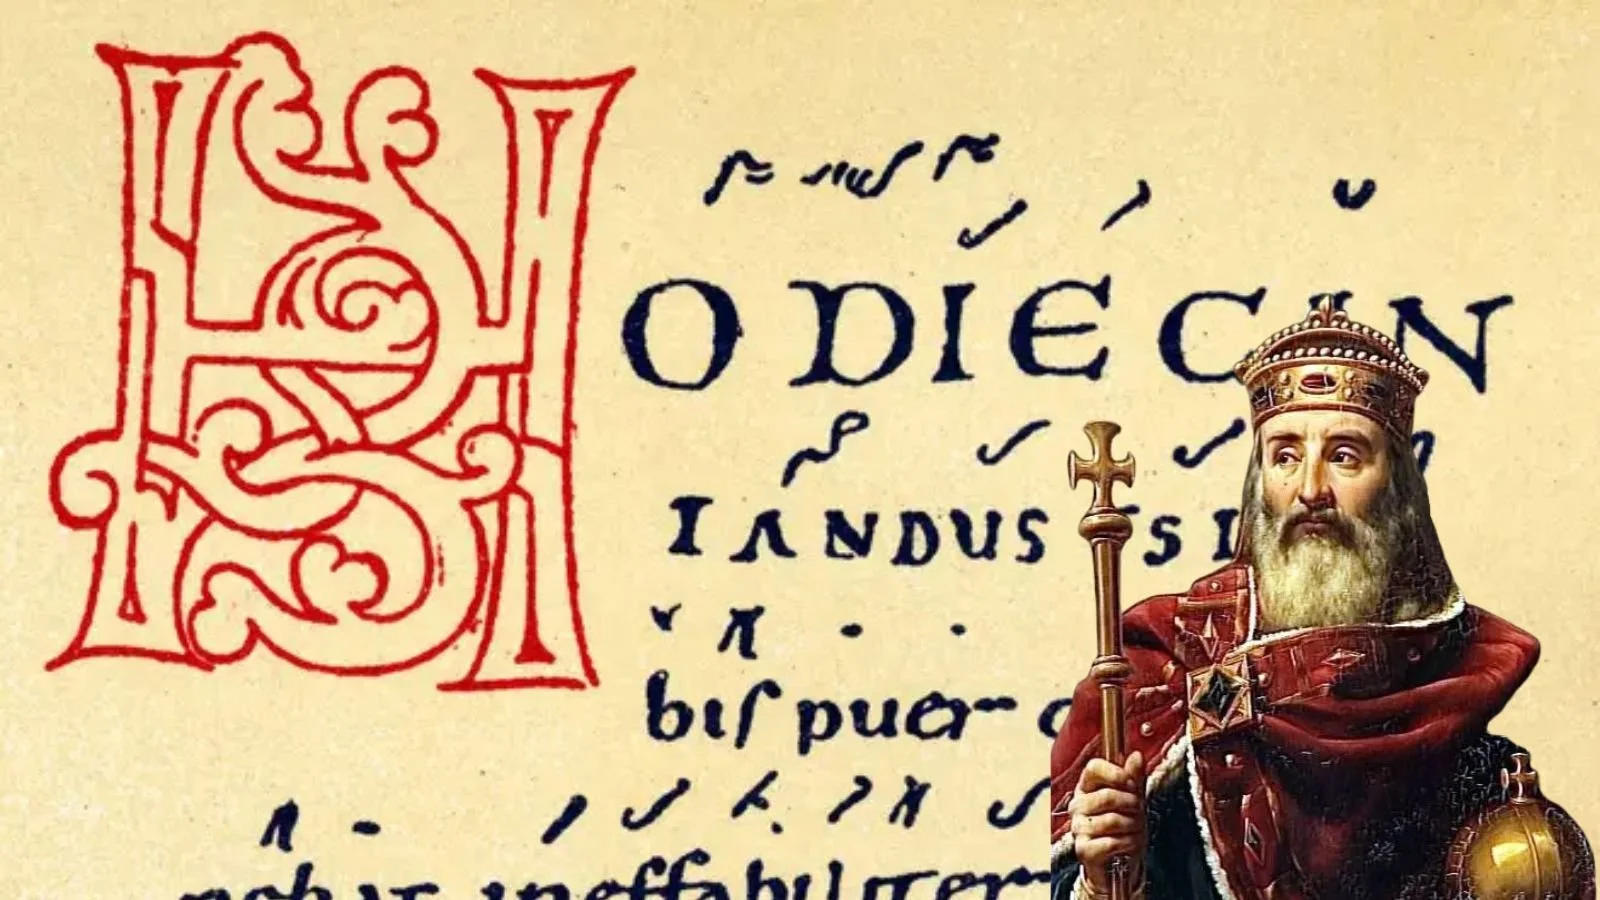 HODIE CAN
TANDUS EST
biſ puer
ineffabiliter